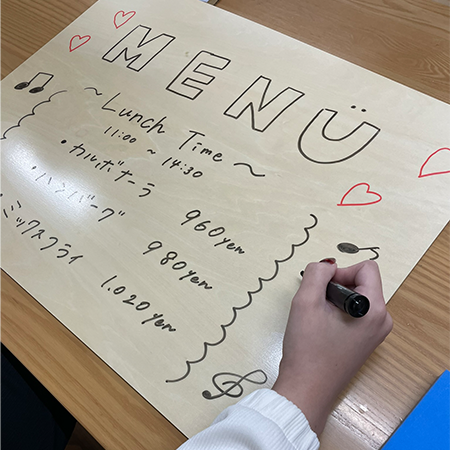 MENU
～Lunch Time～
11:00 ～ 14:30
・カルボナーラ 960yen
・ハンバーグ 980yen
・ミックスフライ 1.020yen